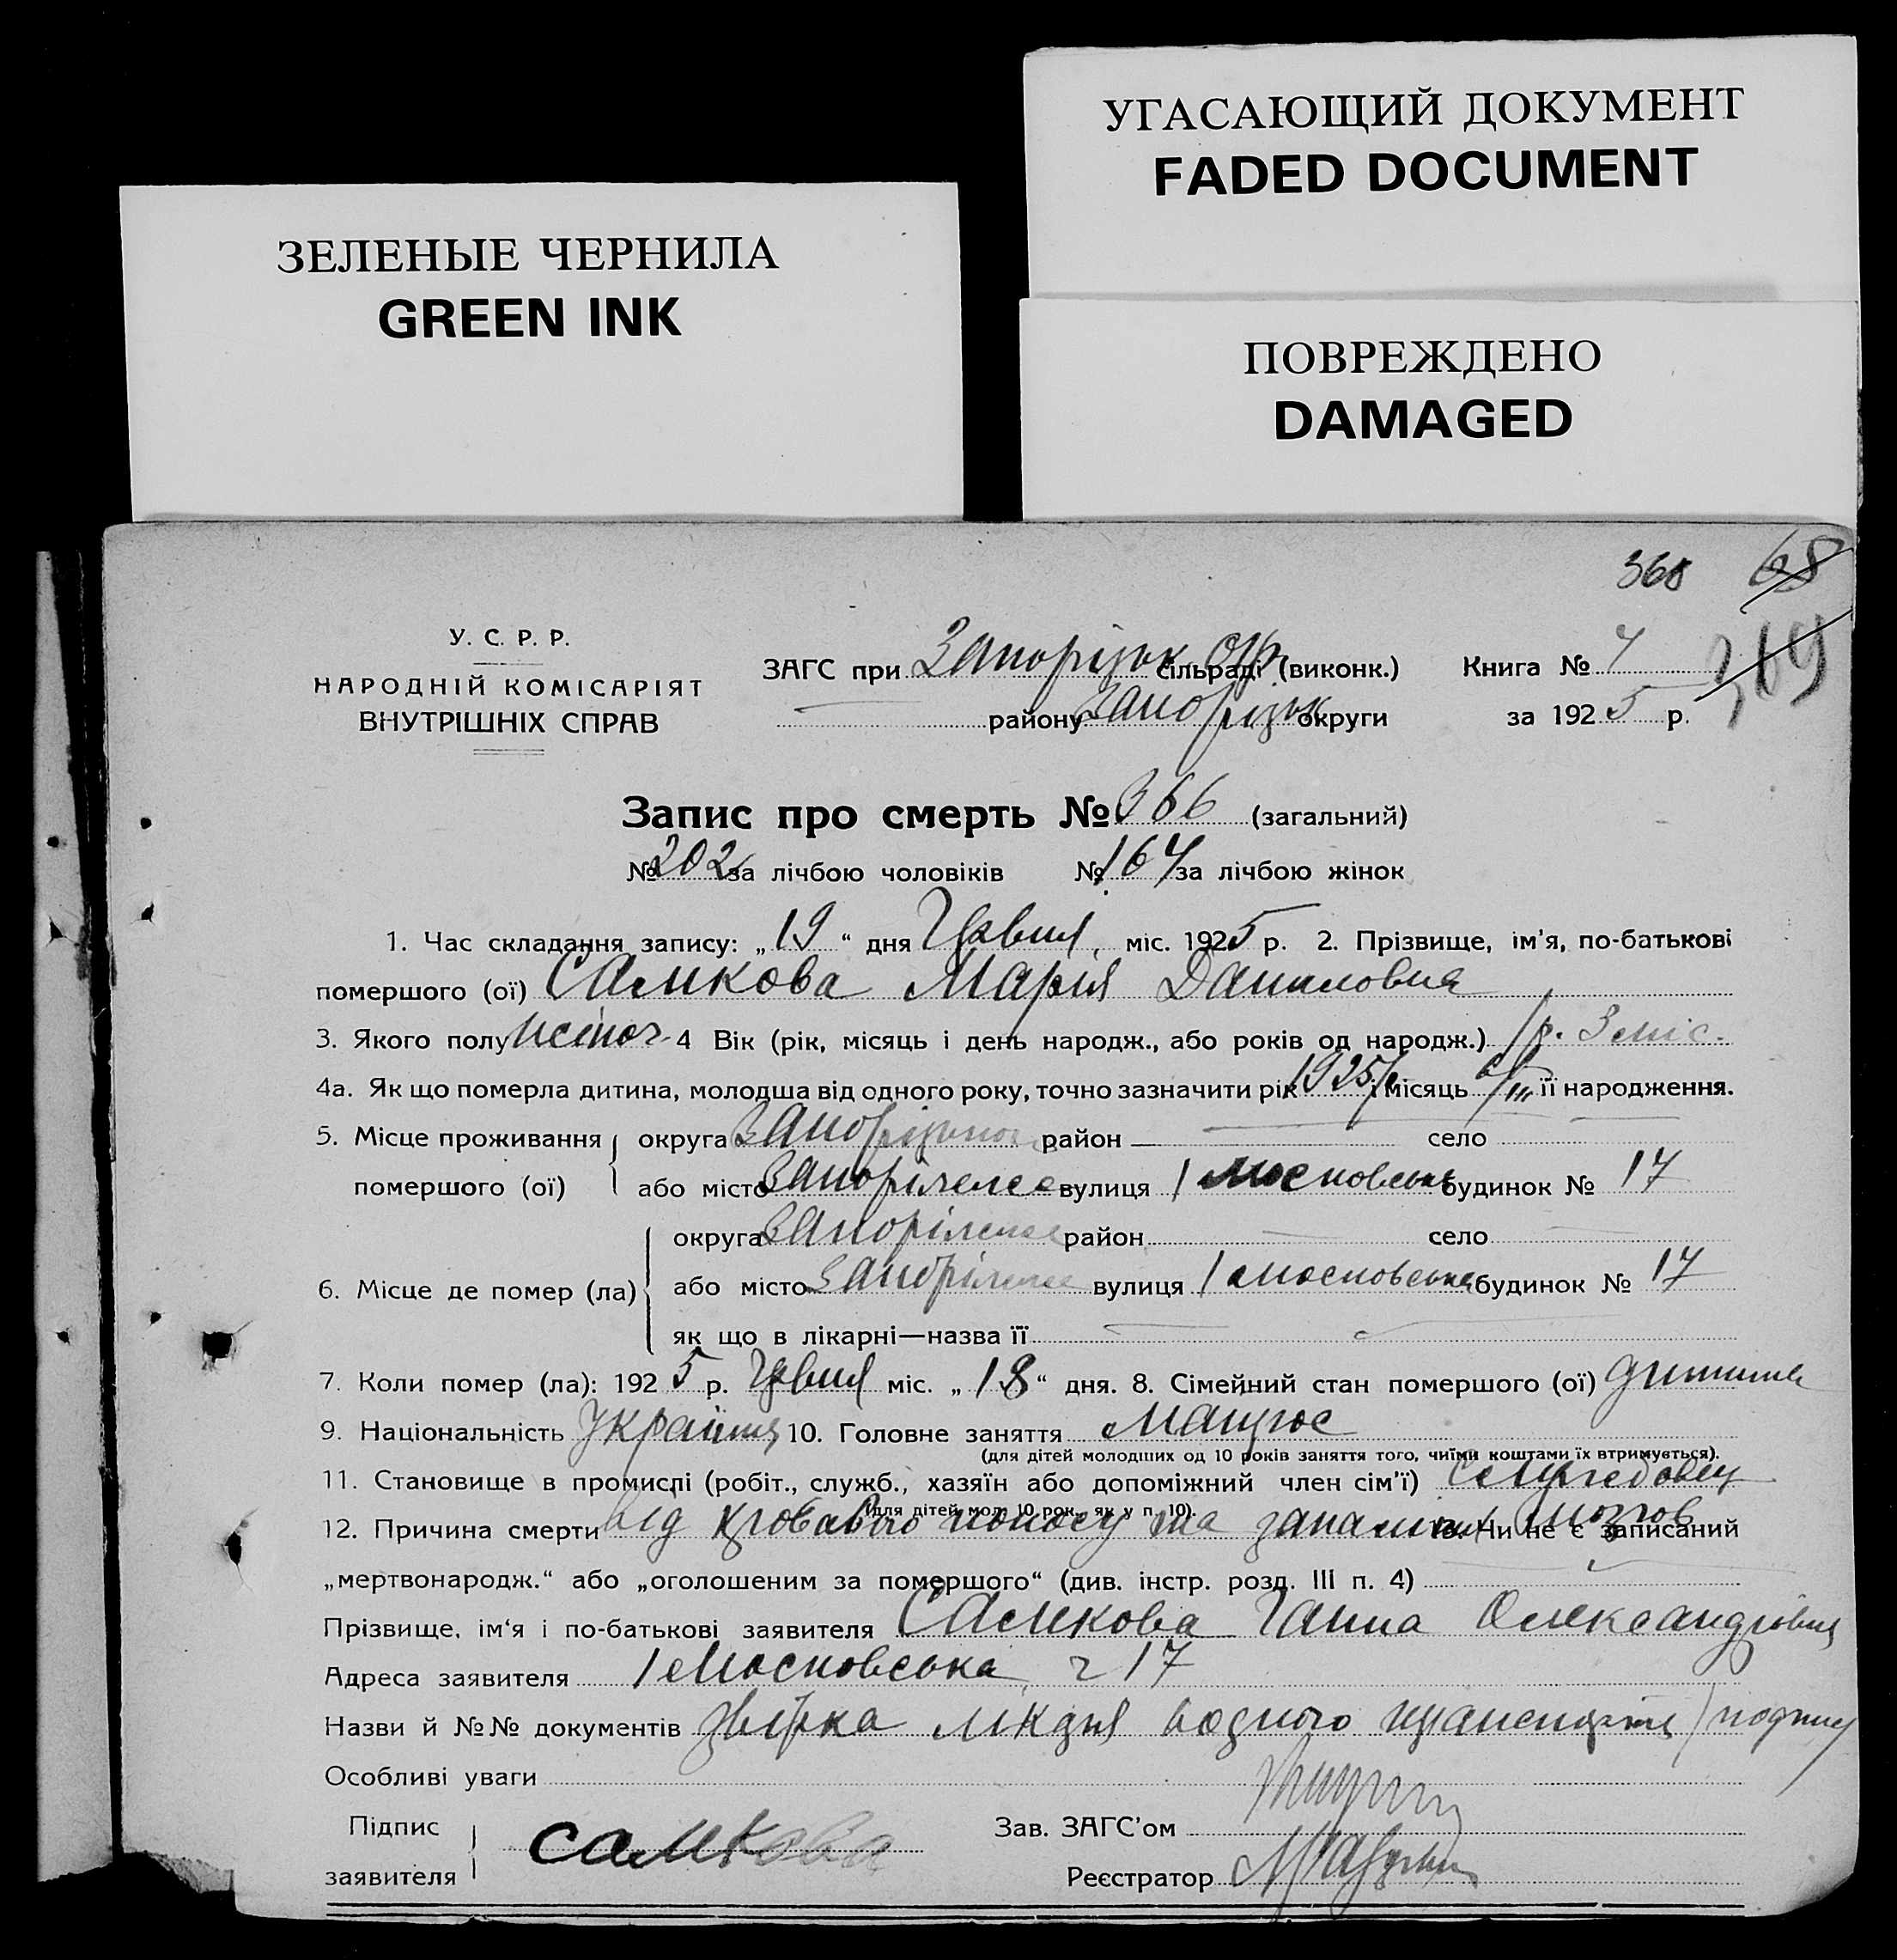 УГАСАЮЩИЙ ДОКУМЕНТ
FADED DOCUMENT
ЗЕЛЕНЫЕ ЧЕРНИЛА
GREEN INK
ПОВРЕЖДЕНО
DAMAGED
368 68
369
У. С. Р. Р.
НАРОДНІЙ КОМІСАРІЯТ
ВНУТРІШНІХ СПРАВ
ЗАГС при Запорізьк. Окр. сільраді (виконк.) Книга № 4
району Запорізьк округи за 1925 р.
Запис про смерть № 366 (загальний)
№ 202 за лічбою чоловіків № 164 за лічбою жінок
1. Час складання запису: „19“ дня Червня міс. 1925 р. 2. Прізвище, ім'я, по-батькові
помершого (ої) Самкова Марія Даниловна
3. Якого полу жіноч. 4 Вік (рік, місяць і день народж., або років од народж.) 3 міс.
4а. Як що померла дитина, молодша від одного року, точно зазначити рік 1925 і місяць її народження.
5. Місце проживання округа район село
помершого (ої) або місто Запоріжже вулиця 1 Московська будинок № 17
округа Запоріжже район село
6. Місце де помер (ла) або місто Запоріжже вулиця 1 Московська будинок № 17
як що в лікарні—назва її
7. Коли помер (ла): 1925 р. Червня міс. „18“ дня. 8. Сімейний стан помершого (ої) дитина
9. Національність Україн. 10. Головне заняття
(для дітей молодших од 10 років заняття того, чиїми коштами їх втримується).
11. Становище в промислі (робіт., служб., хазяїн або допоміжний член сім'ї)
(для дітей мол. 10 рок. як у п. 10).
12. Причина смерти від кровавого поносу та запалення мозгов 13. Чи не є записаний
„мертвонародж.“ або „оголошеним за помершого“ (див. інстр. розд. III п. 4)
Прізвище, ім'я і по-батькові заявителя Самкова Ганна Олександрівна
Адреса заявителя 1 Московська ч 17
Назви й №№ документів лікаря водного транспорта
Особливі уваги
Підпис
заявителя Самкова
Зав. ЗАГС'ом
Реєстратор